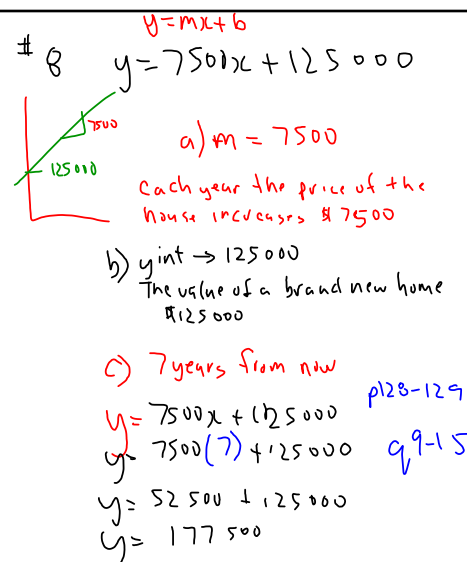 y=mx+b
# 8 y=7500x+125000
7500
125000
a) m = 7500
Each year the price of the
house increases $7500
b) yint → 125000
The value of a brand new home
$125000
c) 7 years from now
p128-129
y= 7500x+125000
y= 7500(7)+125000 q9-15
y= 52500+125000
y= 177500